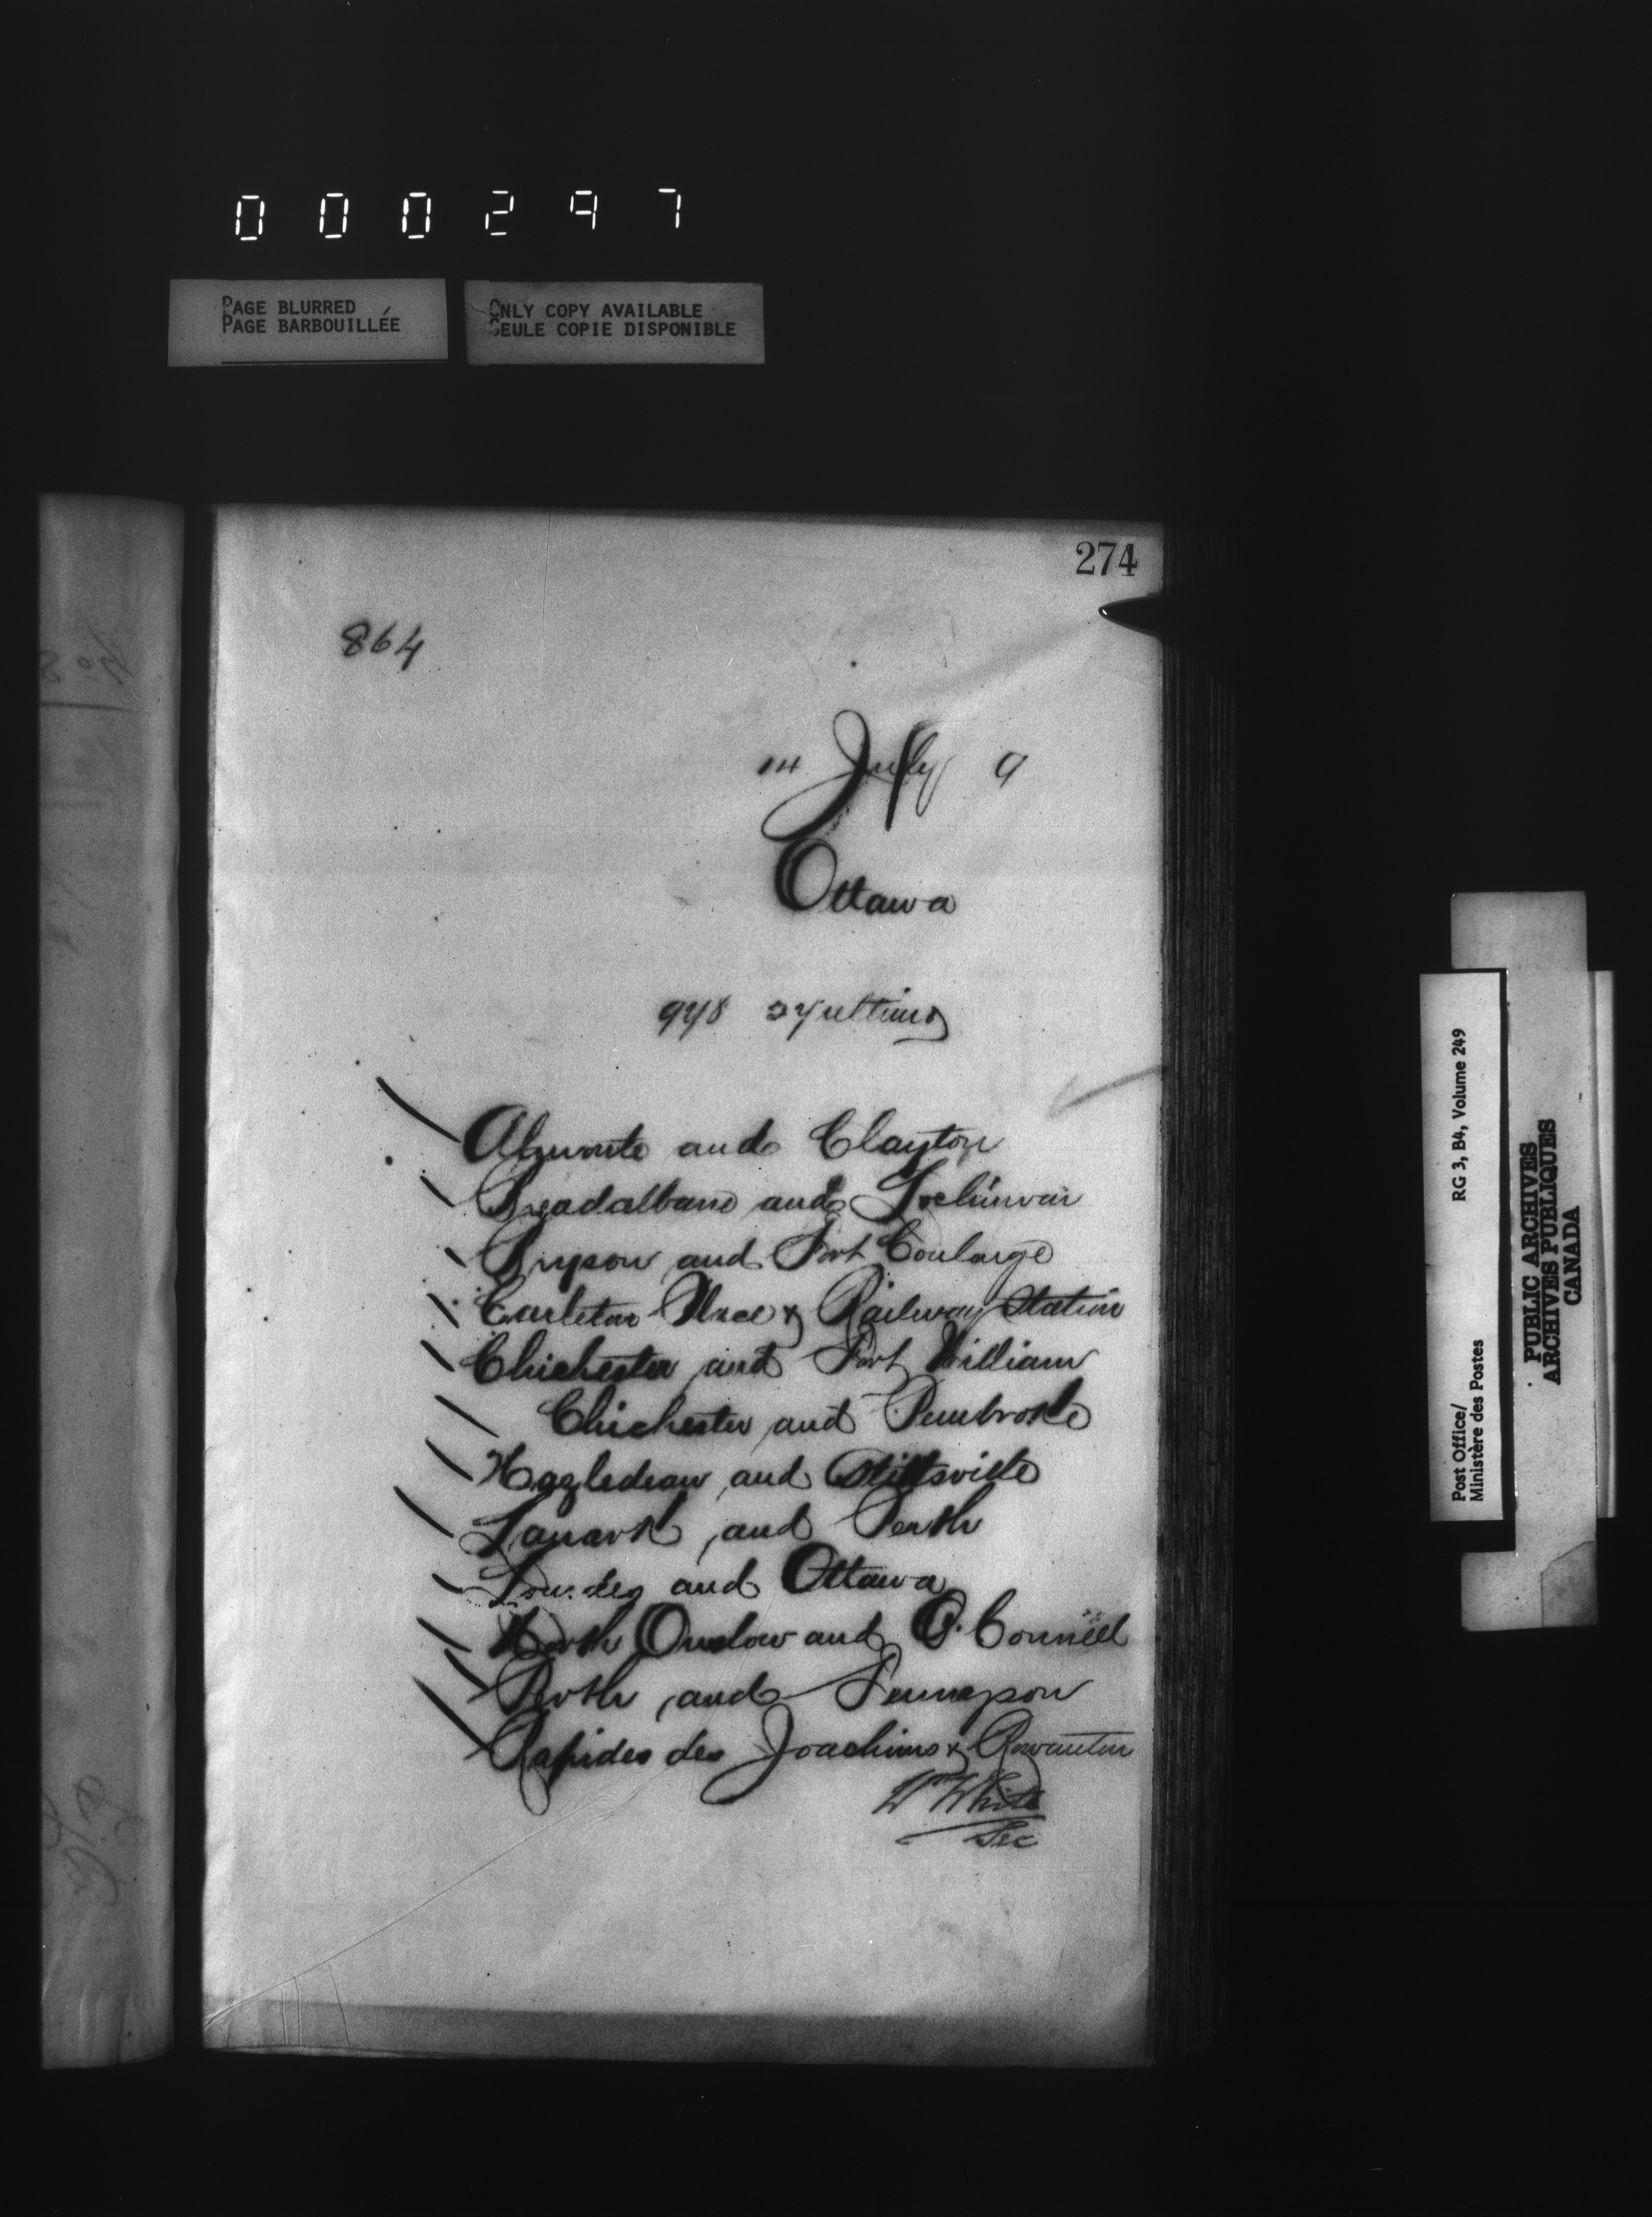 000297
PAGE BLURRED
PAGE BARBOUILLÉE
ONLY COPY AVAILABLE
SEULE COPIE DISPONIBLE
274
864
14 July 9
Ottawa
978 27 ultimo
Almonte and Clayton
Breadalbane and Lochinvar
Bryson and Fort Coulonge
Carleton Place & Railway Station
Chichester and Fort William
Chichester and Pembroke
Hazledean and Stittsville
Lanark and Perth
and Ottawa
North Onslow and O'Connell
Perth and
Rapides des Joachims & Rowanton
W White
Sec
Post Office/ RG 3, B4, Volume 249
Ministère des Postes
PUBLIC ARCHIVES
ARCHIVES PUBLIQUES
CANADA